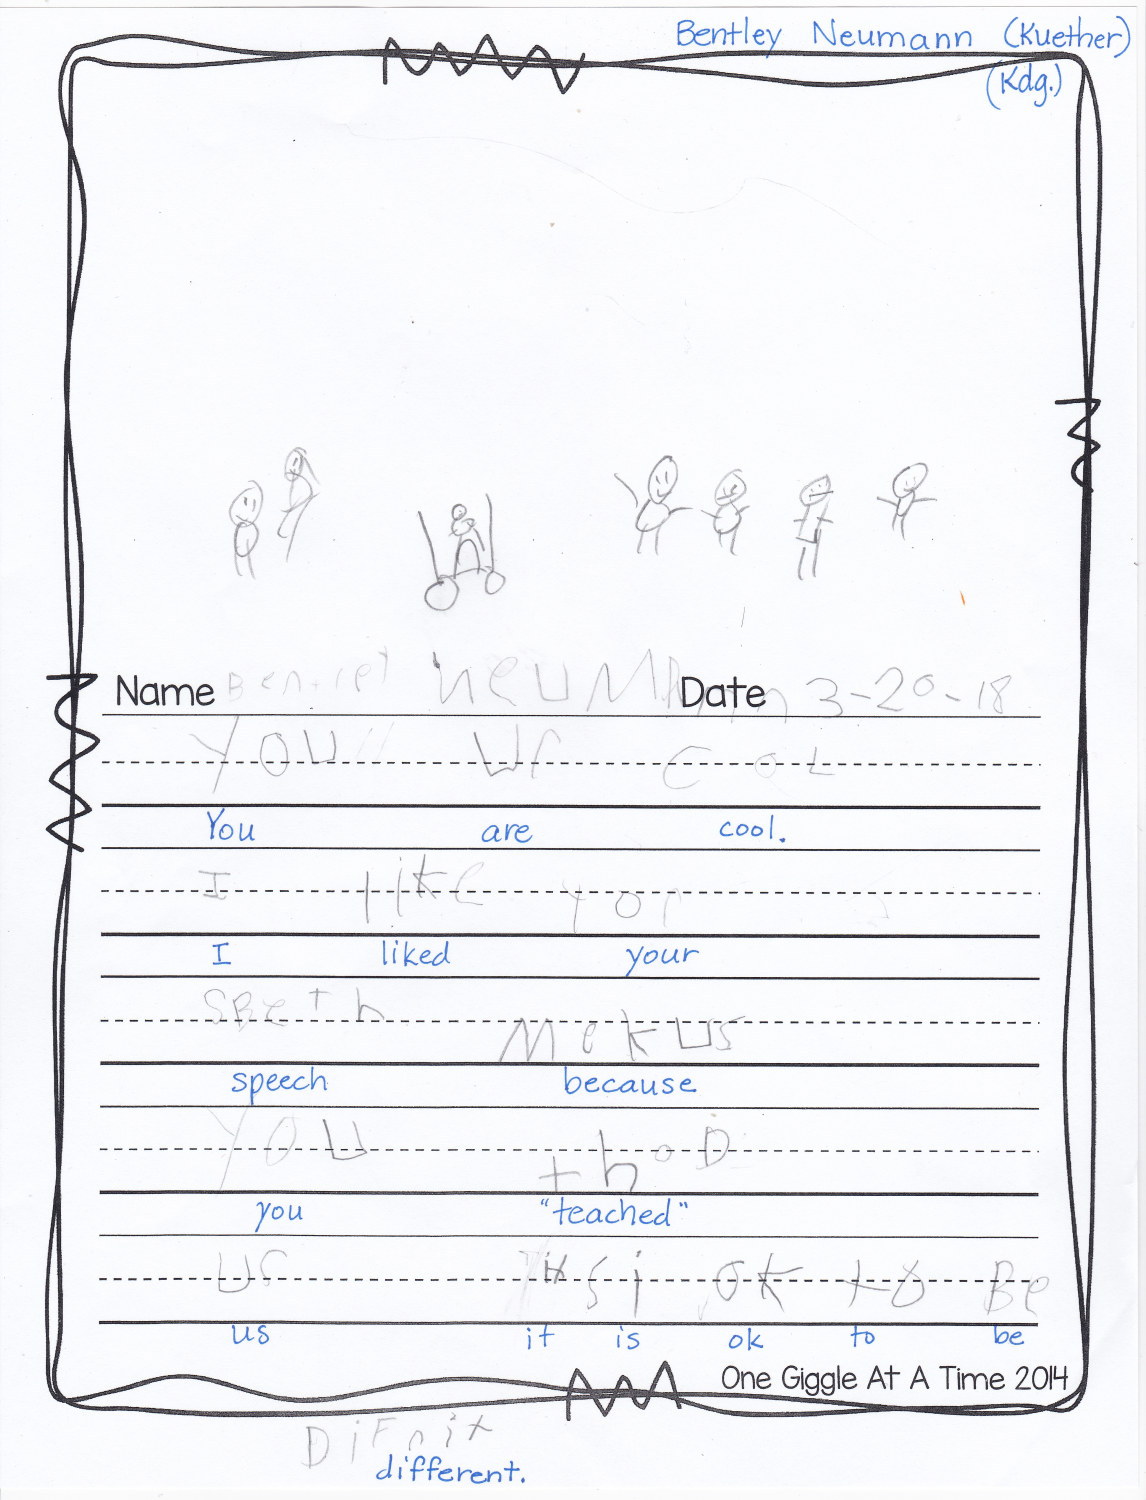 Bentley Neumann (Kuether)
(Kdg.)
Name Bentley Neumann Date 3-20-18
You ur cOL
You are cool.
I like yor
I liked your
SBeth Mekus
speech because
you thoD
you "teached"
us its i ok to Be
us it is ok to be
One Giggle At A Time 2014
DiFnit
different.